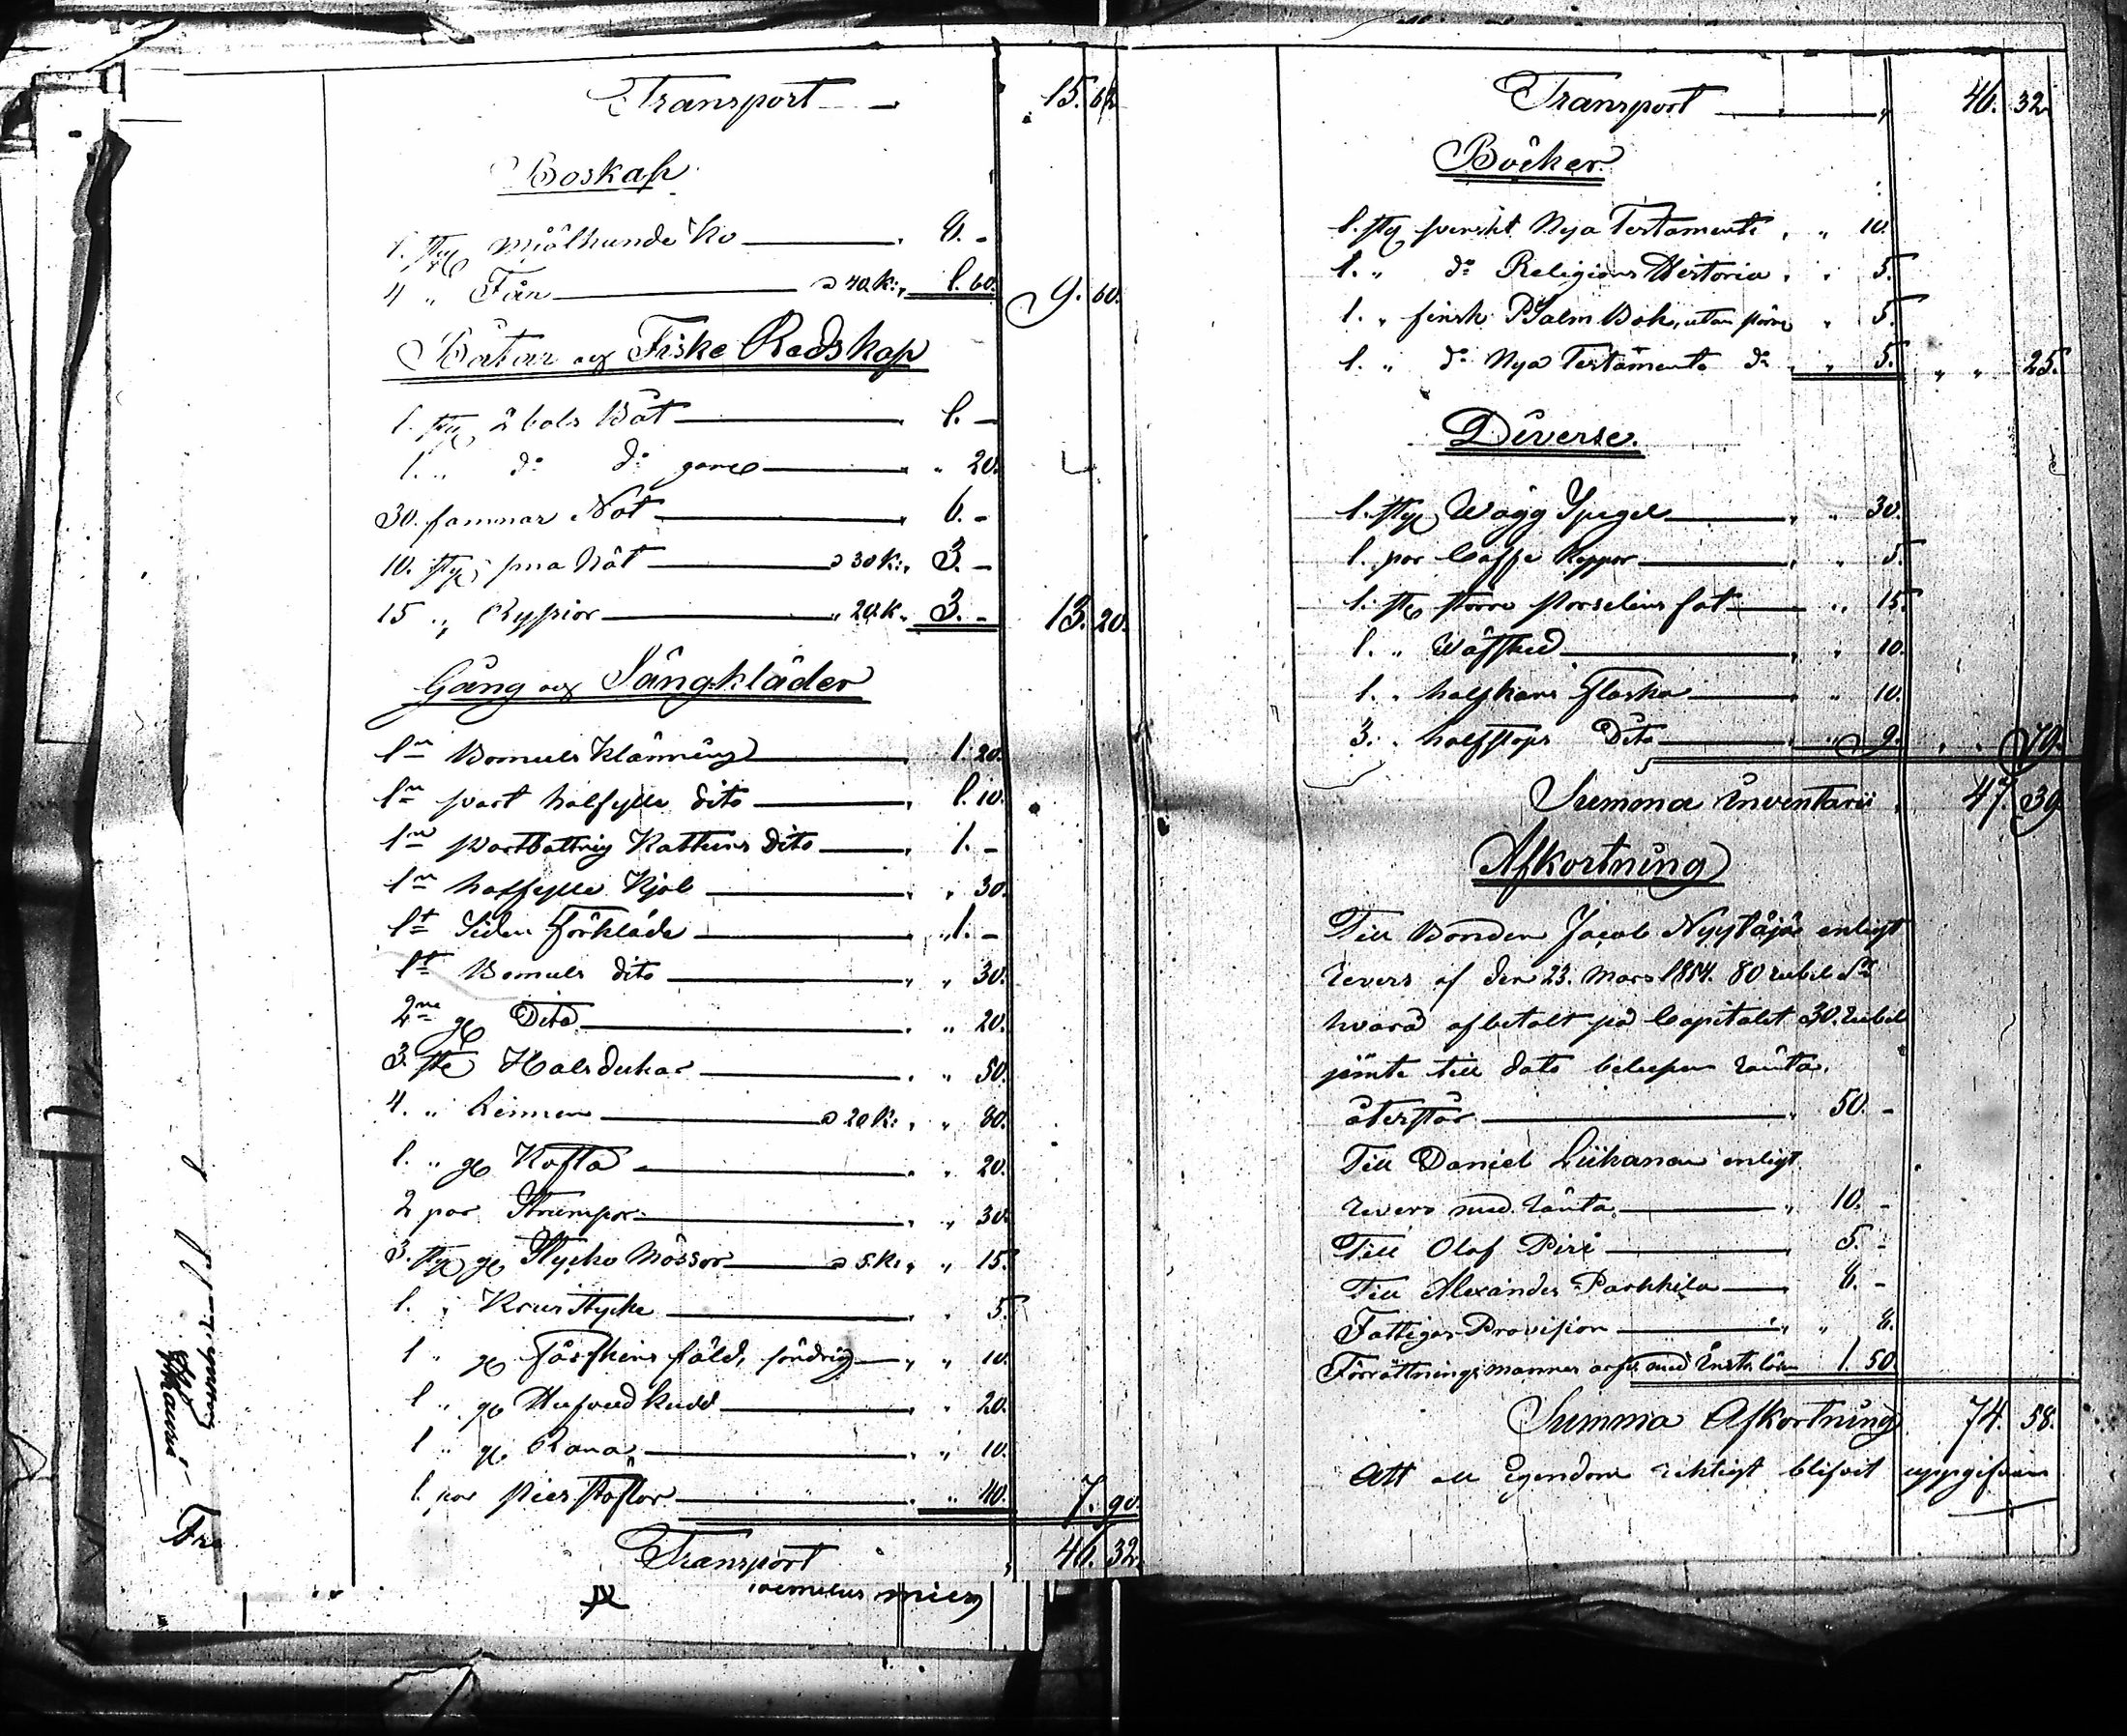 Transport 15. 62
Boskap
1. styck mjölkande Ko 8. -
4 " Får a 40 K: 1. 60. 9. 60.
Båtar och Fiske Redskap
1. styck 2 bols Båt 1. -
1. " do do gamel " 20.
30. famnar Not 6. -
10. styck sma Nät a 30 K: 3. -
15 " Ryssior " 20 K. 3. - 13. 20.
Gång och Sängkläder
1n Bomuls Klänning 1. 20.
1n svart halfylle dito 1. 10.
1n svartbottnig Kattuns dito 1. -
1n halfylle Kjol " 30.
1t Siden Förkläde 1. -
1t Bomuls dito " 30.
2ne gl Dito " 20.
3 st Halsdukar " 50.
4. " Linnen a 20 K: " 80.
1. " gl Kofta " 20.
2 par Strumpor " 30.
3. styck gl Stycke Mössor a 5 K: " 15.
1. " Krus Stycke " 5.
1 " gl Fårskins fäld, söndrig " 10.
1 " gl Hufvud kudd " 20.
1 " gl Rana " 10.
1. par " 40. 7. 90.
Transport 46. 32.
Transport 46. 32.
Böcker.
1. styck svenskt Nya Testamente " 10.
1. " do Religions Historia " 5.
1. " finsk Psalm Bok, utan " 5.
1. " do Nya Testamente do " 5. " " 25.
Diverse.
1. styck Wägg Spegel " 30.
1. par Caffe Koppar " 5.
1. st större Porselins fat " 15.
1. " Wäfsked " 10.
1. " halfkans Flaska " 10.
3. " halfstops Dito " 9. " " 79.
Summa Inventarii 47. 39.
Afkortning
Till Bonden Jacob enligt
revers af den 23. Mars 1854. 80 rubel Sr
hvara afbetalt på Capitalet 30. rubel
jämte till dato belupen ränta,
återstår 50. -
Till Daniel Liikanen enligt
revers med ränta 10. -
Till Olof Piri 5. -
Till Alexander Parkkila 8. -
Fattigas Provision " 8.
Förrättningsmannes med 1. 50.
Summa Afkortning 74. 58.
Att all Egendom riktigt blifvit uppgifven